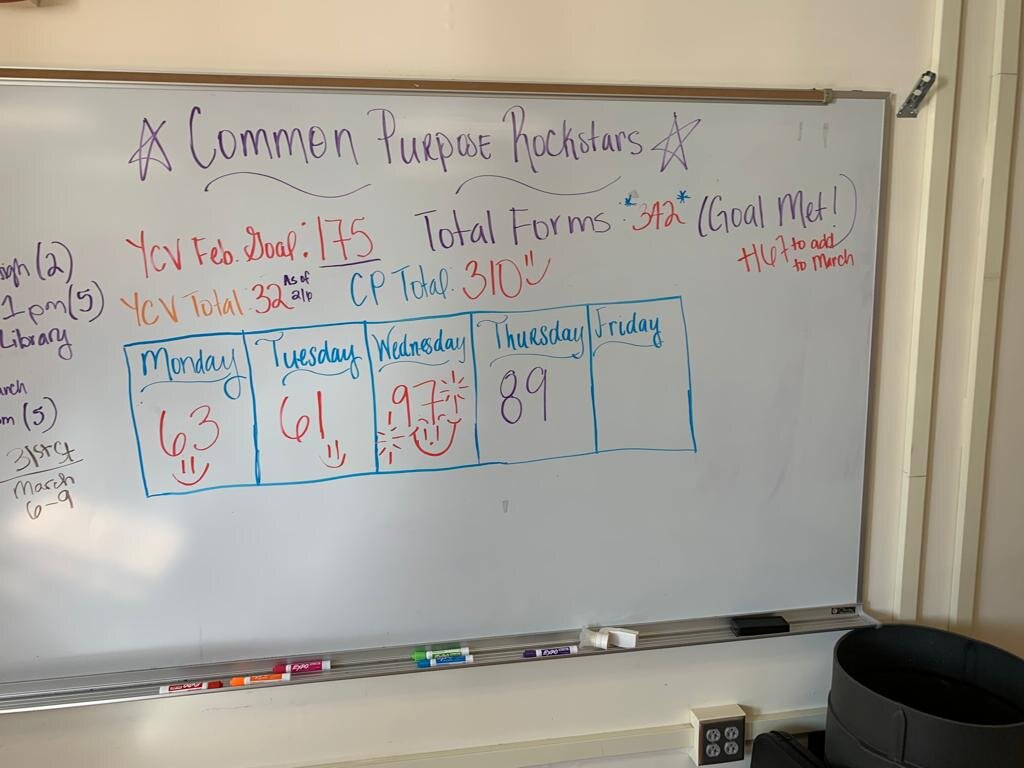 ☆ Common Purpose Rockstars ☆
YCV Feb. Goal: 175
Total Forms: *342* (Goal Met!)
+167 to add to March
YCV Total: 32 As of 2/6
CP Total: 310
Monday Tuesday Wednesday Thursday Friday
63 61 97 89
(2)
1 pm (5)
Library
(5)
31st St
March
6-9
EXPO